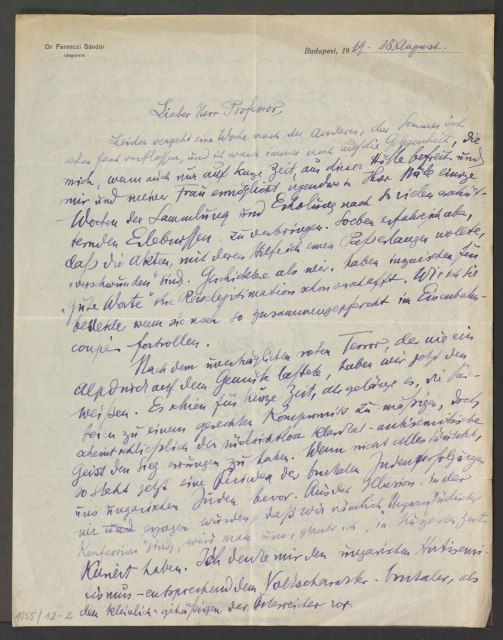 Dr Ferenczi Sándor
idegorvos
Budapest, 1919. 28. August.
Lieber Herr Professor,
Leider vergeht eine Woche nach der Anderen, der Sommer ist
schon fast verflossen, und ich warte immer noch auf die Gelegenheit, die
mich, wenn auch nur auf kurze Zeit, aus dieser Hölle befreit und
mir und meiner Frau ermöglicht, irgendwo in Ihrer Nähe einige
Wochen der Sammlung und Erholung nach so vielen erschüt-
ternden Erlebnissen, zu verbringen. Soeben erfahre ich aber,
daß die Akten, mit deren Hilfe ich einen Paß erlangen wollte,
„verschwunden" sind. Geschicktere als wir, haben inzwischen
„gute Worte" eine Reiselegitimation schon verschafft. Wie ich sie
beneide, wenn sie noch so zusammengepfercht im Eisenbahn-
coupé fortrollen.
Nach dem unerträglichen roten Terror, der wie ein
Alpdruck auf dem Gemüte lastete, haben wir jetzt den
weißen. Es schien für kurze Zeit, als gelänge es, die Par-
teien zu einem gerechten Kompromiss zu mäßigen, doch
scheint schließlich der rücksichtslose klerikal-antisemitische
Geist den Sieg errungen zu haben. Wenn nicht alles täuscht,
so steht jetzt eine Periode der brutalen Judenverfolgung
uns ungarischen Juden bevor. Aus der Illusion, in der
wir erzogen wurden, daß wir nämlich „Ungarn jüdischer
Konfession" sind, wird man uns, glaube ich, in kürzester Zeit
kuriert haben. Ich denke mir den ungarischen Antisemi-
tismus – entsprechend dem Volkscharakter – brutaler, als
den kleinlich-gehässigen der Österreicher vor.
1055/12-2